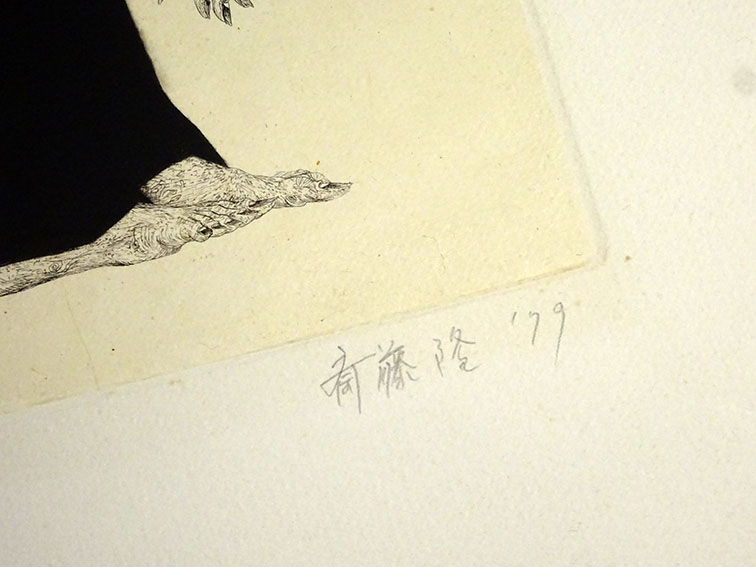 斎藤隆 '79